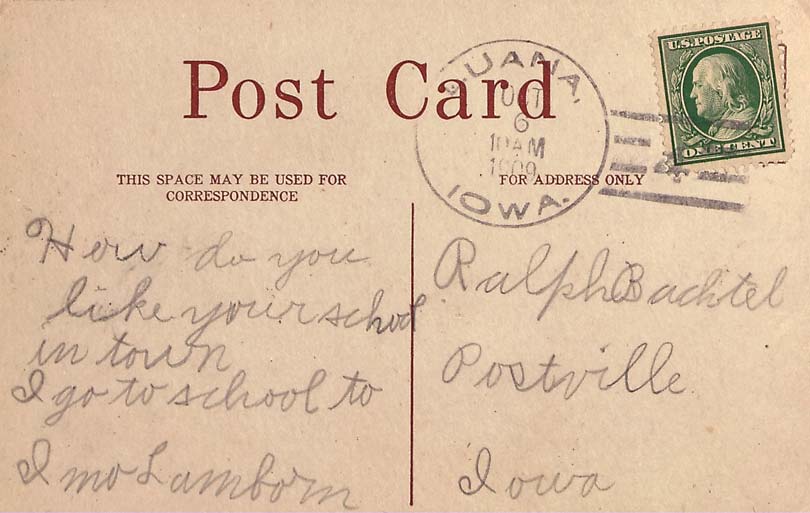 Post Card
U.S. POSTAGE
ONE CENT
LUANA,
OCT
6
10 AM
1909
IOWA.
THIS SPACE MAY BE USED FOR
CORRESPONDENCE
FOR ADDRESS ONLY
How do you
like your school
in town
I go to school to
Imo Lamborn
Ralph Bachtel
Postville
Iowa